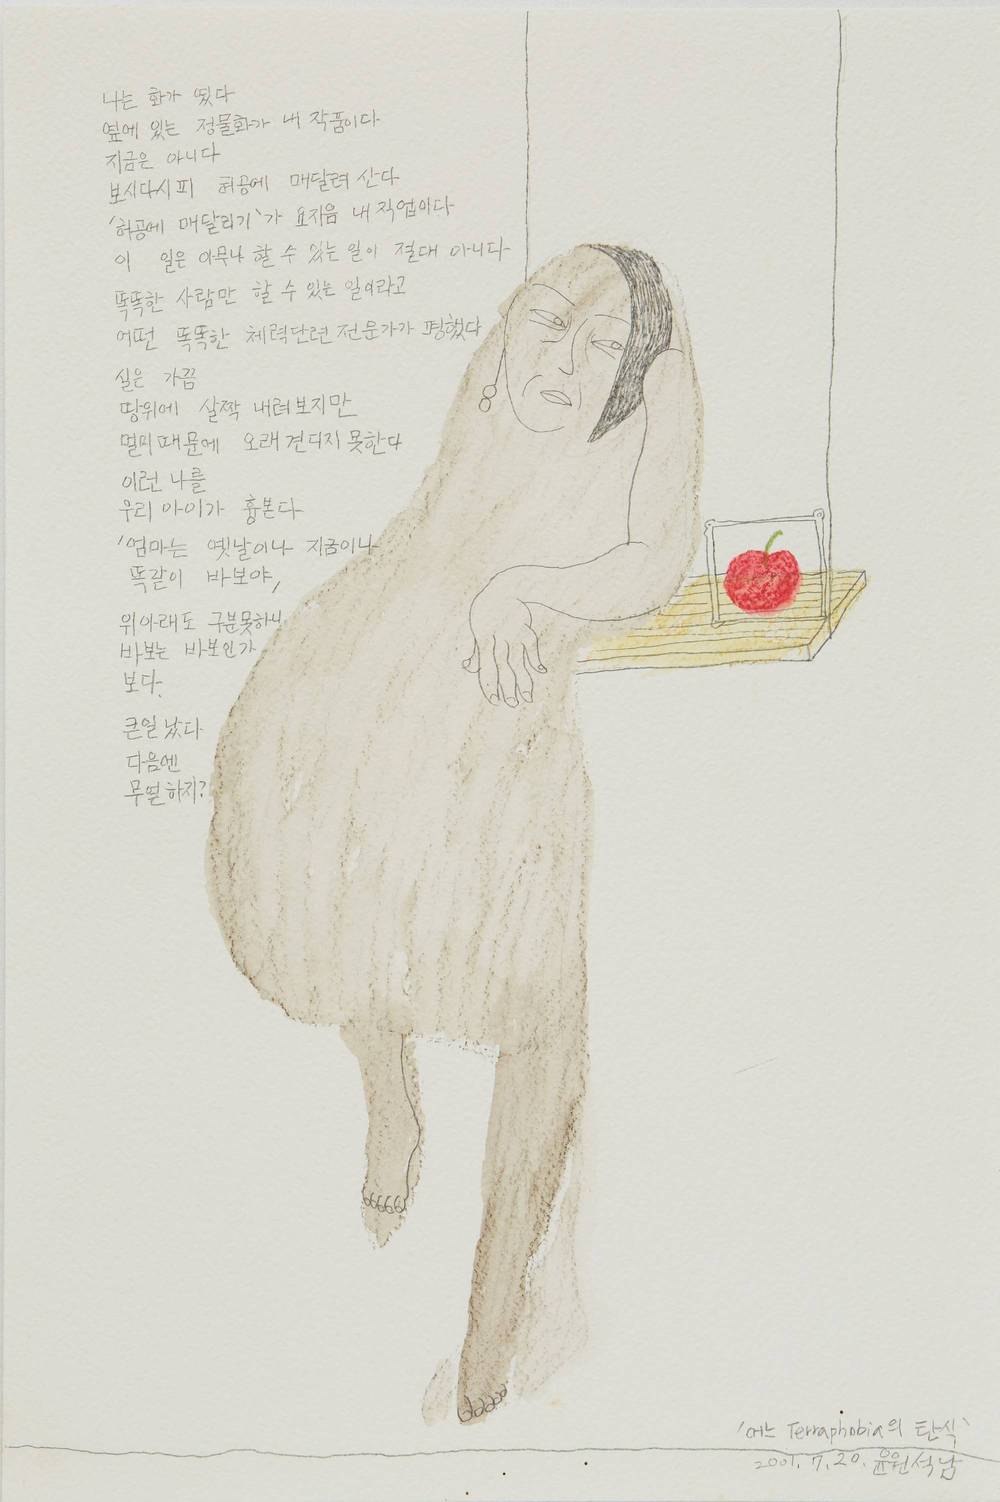 나는 화가 였다
옆에 있는 정물화가 내 작품이다
지금은 아니다
보시다시피 허공에 매달려 산다
'허공에 매달리기'가 요지음 내 직업이다
이 일은 아무나 할 수 있는 일이 절대 아니다
똑똑한 사람만 할 수 있는 일이라고
어떤 똑똑한 체력단련 전문가가 평했다
실은 가끔
땅위에 살짝 내려보지만
멀미때문에 오래 견디지 못한다
이런 나를
우리 아이가 흉본다
'엄마는 옛날이나 지금이나
똑같이 바보야,
위아래도 구분못하니
바보는 바보인가
보다.
큰일 났다
다음엔
무얼하지?
'어느 Terraphobia의 탄식'
2001. 7. 20. 윤석남